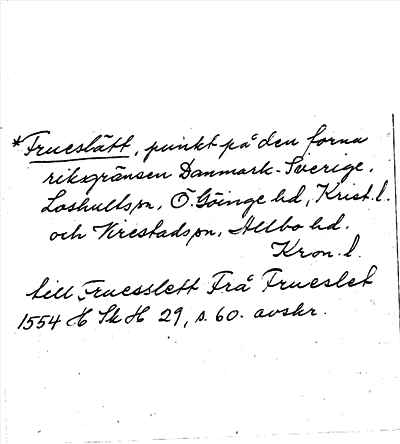 *Frueslätt, punkt på den forna
riksgränsen Danmark-Sverige,
Loshultssn, Ö. Göinge hd, Krist. l.
och Virestads sn, Allbo hd.
Kron. l.
till Fruesslett Frå Frueslet
1554 H Sk H 29, s. 60. avskr.